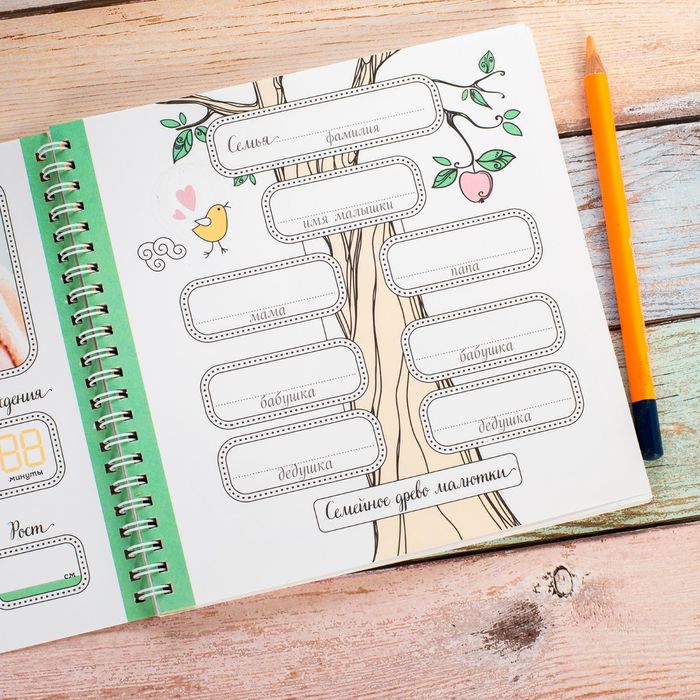 ждения
88
минуты
Рост
с.м.
Семья
фамилия
имя малышки
мама
папа
бабушка
бабушка
дедушка
дедушка
Семейное древо малютки